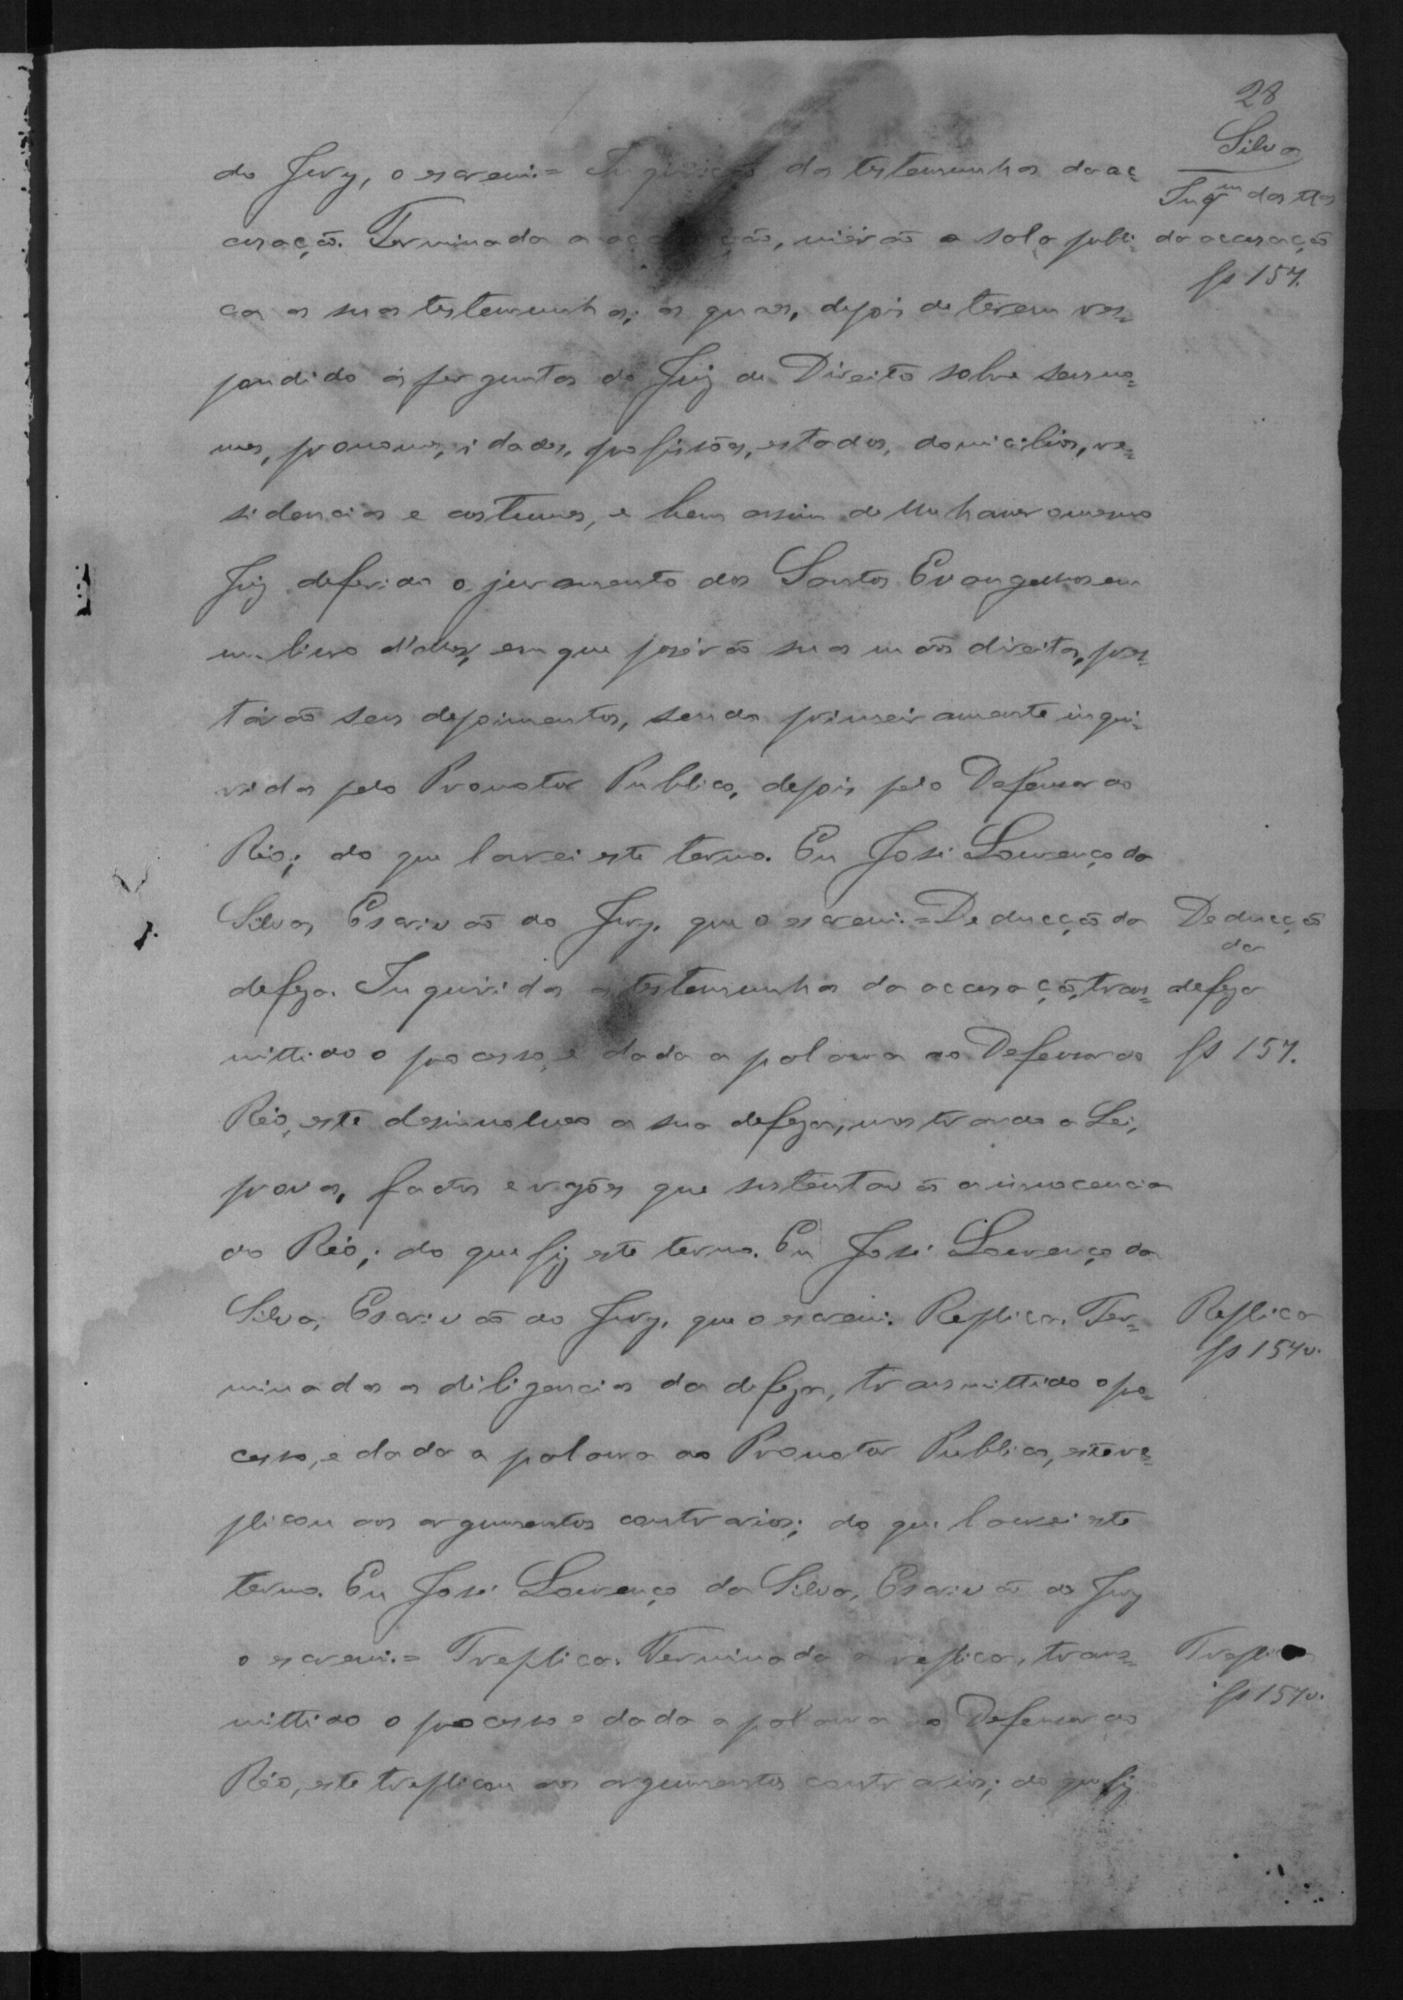 28
Silva
do Jury, o escrevi.= Inquirição das testemunhas da ac=
Inqm das ttas
cusação. Terminada a accusação, vierão a sala publi=
da accusação
ca as suas testemunhas; as quaes, depois de terem res=
fs 157.
pondido ás perguntas do Juiz de Direito sobre seus no=
mes, pronomes, idades, profissões, estados, domicilios, re=
sidencias e costumes, e bem assim de lhes haver o mesmo
Juiz deferido o juramento dos Santos Evangelhos em
um livro d'elles, em que poserão suas mãos direitas, pres=
tárão seus depoimentos, sendo primeiramente inqui=
ridas pelo Promotor Publico, depois pelo Defensor do
Réo; do que lavrei este termo. Eu José Lourenço da
Silva, Escrivão do Jury, que o escrevi.= Deducção da
Deducção
da
defeza. Inquiridas as testemunhas da accusação, trans=
defeza
mittido o processo, e dada a palavra ao Defensor do
fs 157.
Réo, este desinvolveo a sua defeza, mostrando a Lei,
provas, factos e rasões que sustentavão a innocencia
do Réo; do que fiz este termo. Eu José Lourenço da
Silva, Escrivão do Jury, que o escrevi. Replica. Ter=
Replica
fs 157v.
minadas as diligencias da defeza, transmittido o pro=
cesso, e dada a palavra ao Promotor Publico, este re=
plicou aos argumentos contrarios; do que lavrei este
termo. Eu José Lourenço da Silva, Escrivão do Jury
o escrevi.= Treplica. Terminada a replica, trans=
Treplica
fs 157v.
mittido o processo e dada a palavra ao Defensor do
Réo, este treplicou aos argumentos contrarios; do que fiz